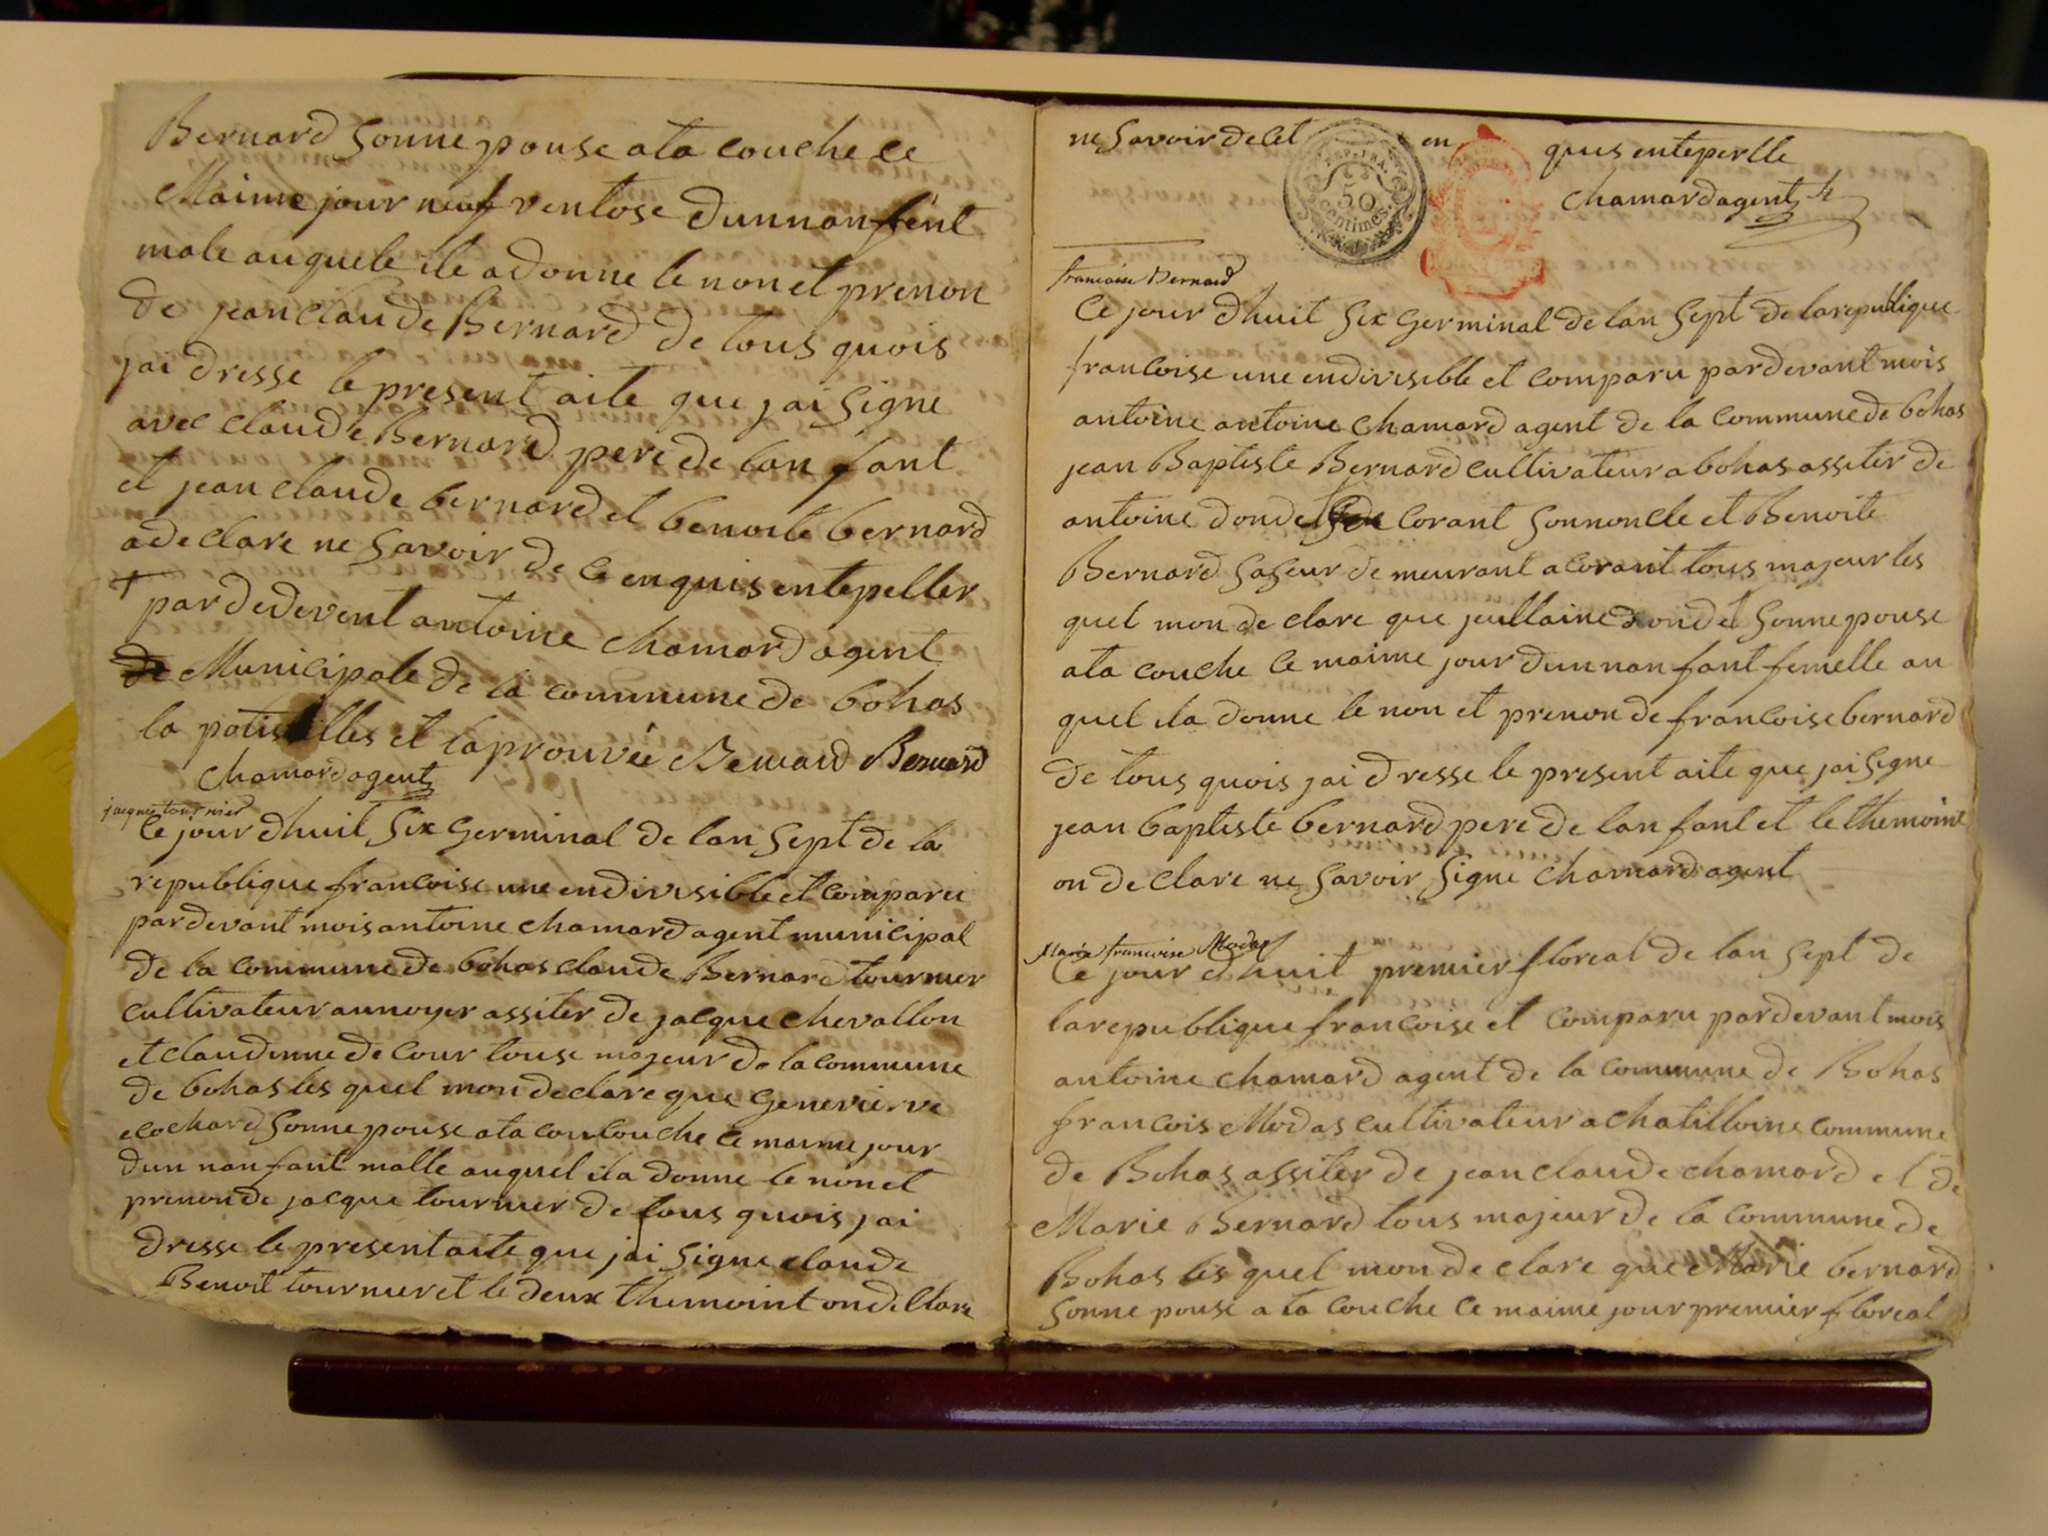 Bernard Sonne pouse ata couche ce
Maime jour neuf ventose dunnan fent
male auquele ile a donne le non et prenon
de jean claude Bernard de tous quois
jai dresse le present aite que jai Signe
avec claude Bernard pere de lan fant
et jean claude bernard et benoite bernard
a declare ne Savoir de ce enquis entepeller
+ par dedevent antoine chamard agent
de Municipale de la commune de bohas
la potis illes et laprouvée Bernard Bernard
chamard agent
jacque tournier
Ce jour dhuit Six Germinal de lan Sept de la
republique francoise une endivisible et comparu
pardevant mois antoine chamard agent municipal
de la commune de bohas claude Bernard tournier
cultivateur aunoyer assiter de jacque chevallon
et claudinne de cour louse majeur de la commune
de bohas les quel mon declare que Genevierve
cochard Sonne pouse ata coucouche ce maime jour
dun nan fant malle auquel ila donne le non et
prenon de jacque tournier de tous quois jai
dresse le present aite que jai Signe claude
Benoit tournier et le deux themoint on declare
ne Savoir de cet en quis enteperlle
REP. FRA.
50
centimes.
chamard agent
francoise Bernard
Ce jour dhuit Six Germinal de lan Sept de la republique
francoise une endivisible et comparu pardevant mois
antoine antoine chamard agent de la commune de bohas
jean Baptiste Bernard cultivateur a bohas assitir de
antoine dondel de corant Sonnoncle et Benoite
Bernard Saseur de meurant a corant tous majeur les
quel mon de clare que jeullaine dondel Sonne pouse
ata couche ce maime jour dunnan fant femelle au
quel ila donne le non et prenon de francoise bernard
de tous quois jai dresse le present aite que jai Signe
jean baptiste bernard pere de lan fant et le themoint
on de clare ne Savoir Signe chamard agent
Maria francoise Modas
Ce jour dhuit premier floreal de lan Sept de
la republique francoise et comparu pardevant mois
antoine chamard agent de la commune de Bohas
francois Modas cultivateur a chatilloine commune
de Bohas assiter de jean claude chamard et de
Marie Bernard tous majeur de la commune de
Bohas les quel mon de clare que Marie bernard
Sonne pouse a ta couche ce maime jour premier floreal